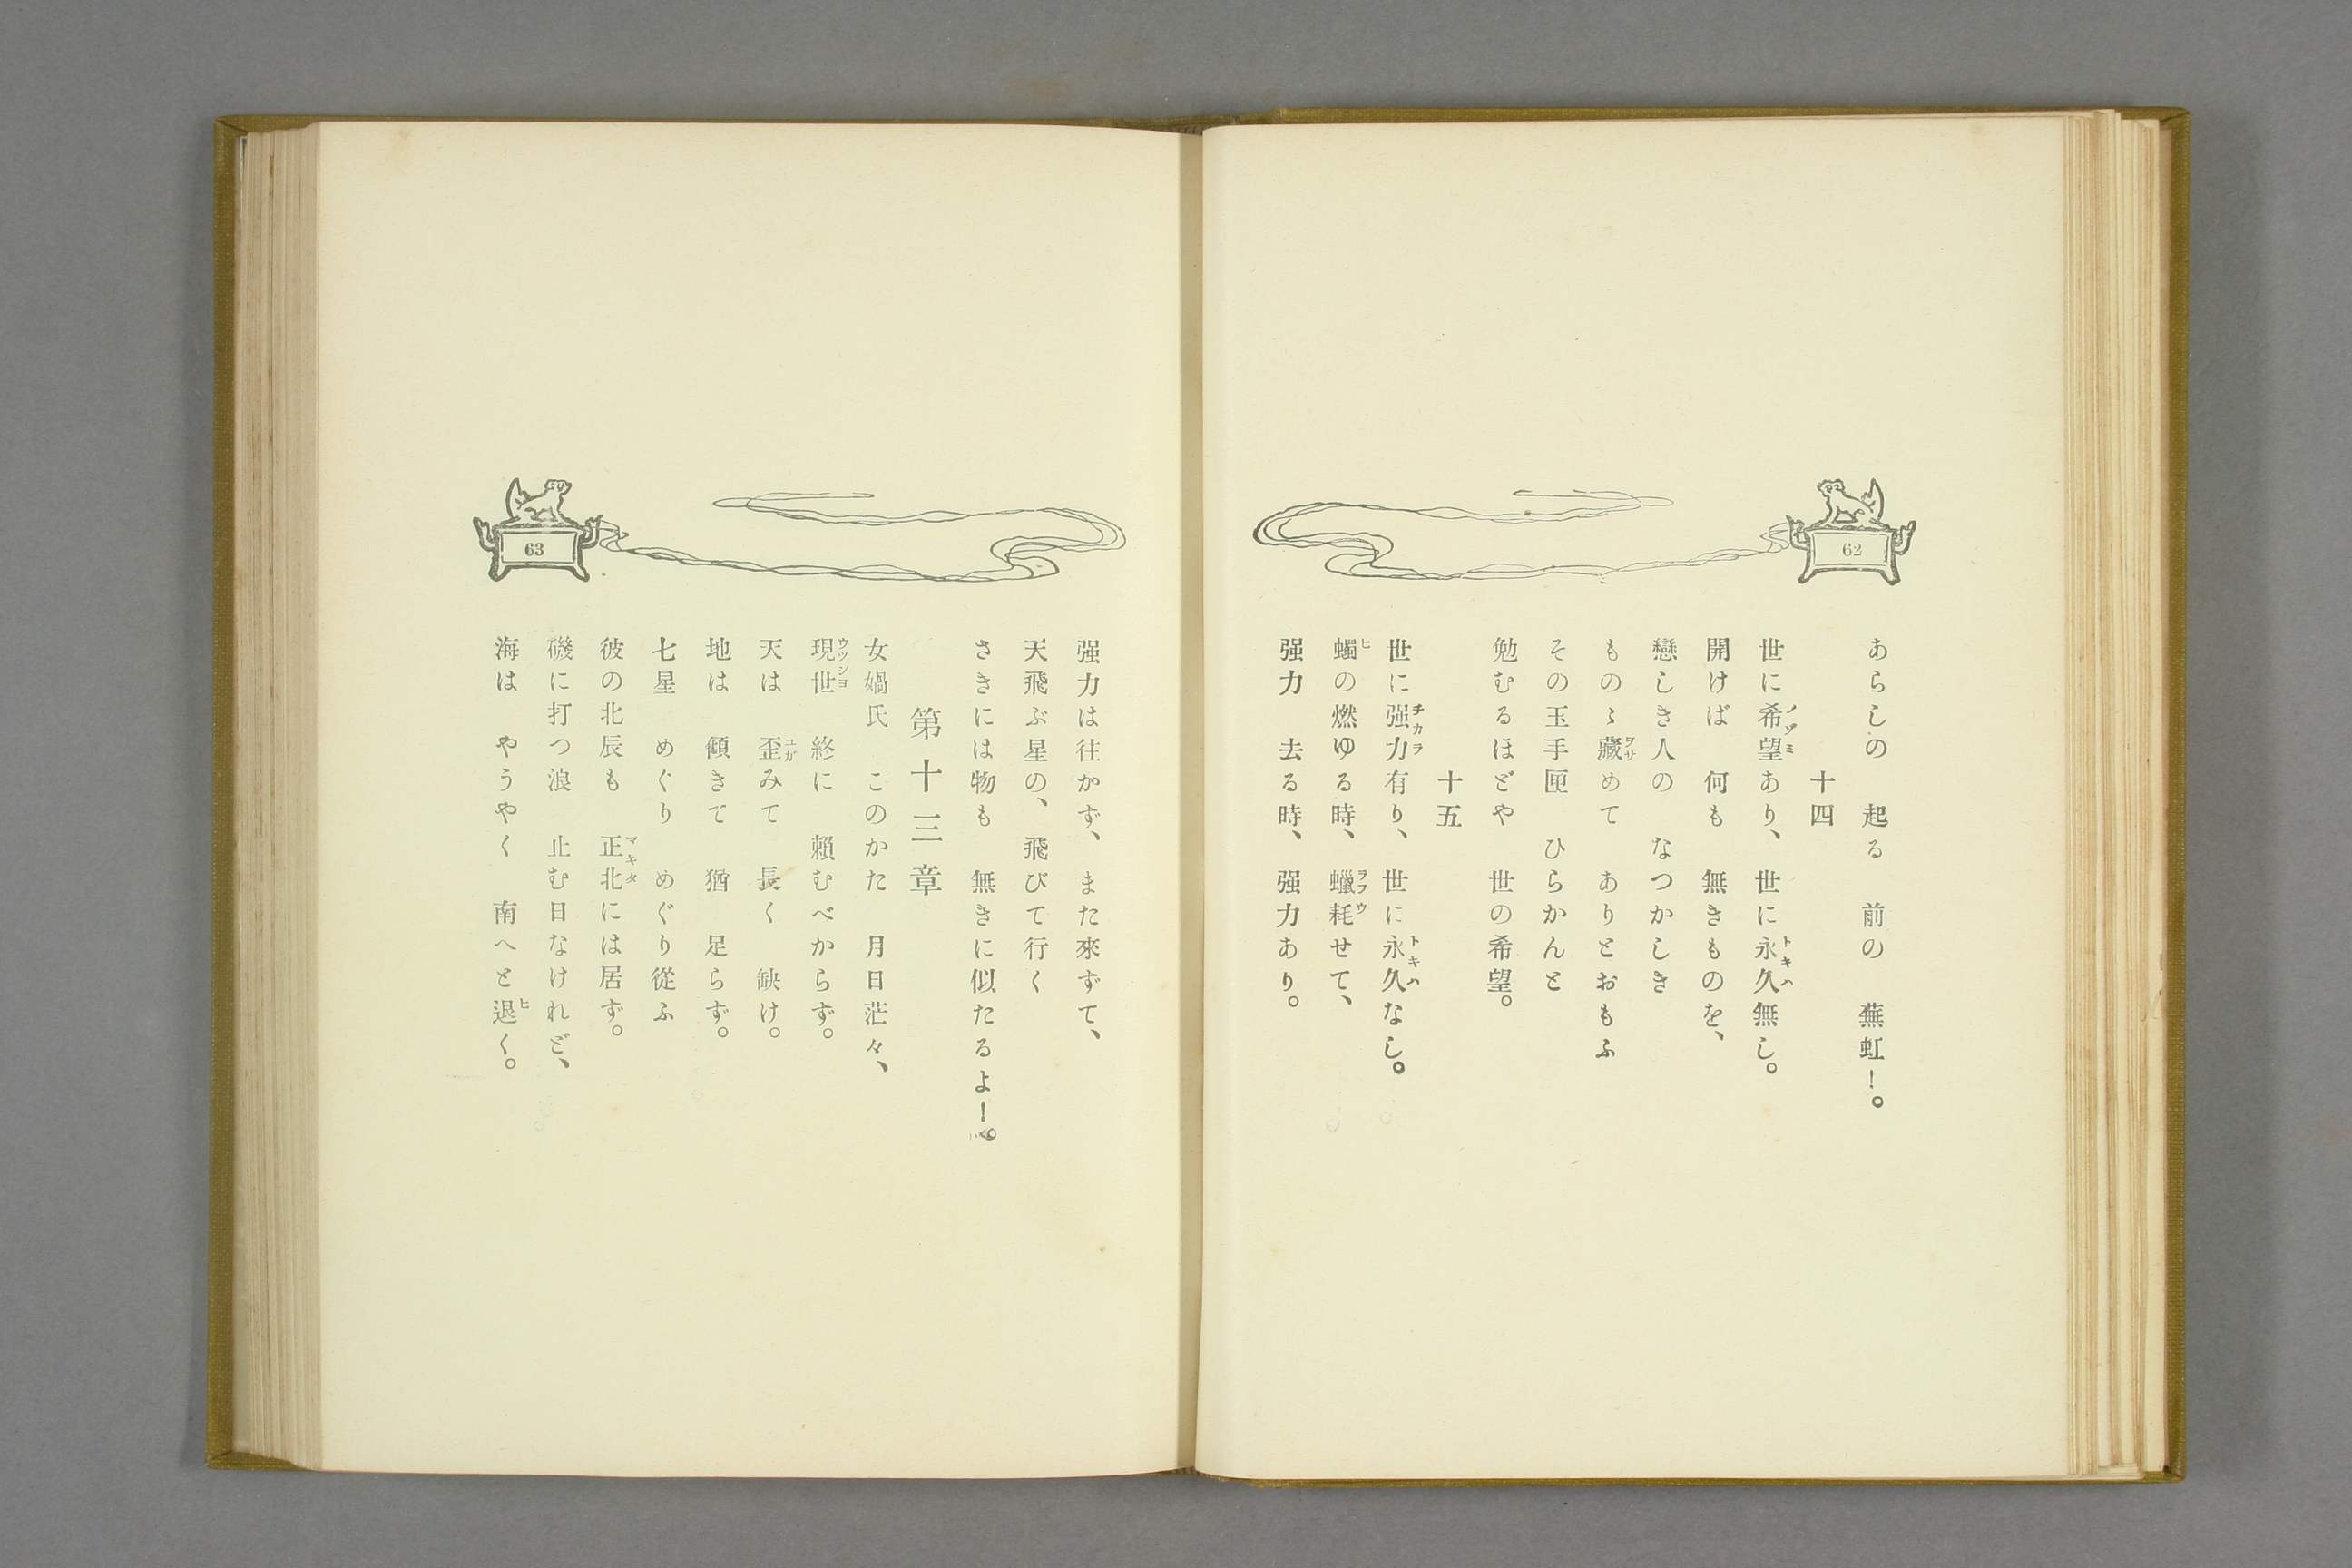 62
あらしの　起る　前の　蕪虹！。
十四
世に希望あり、世に永久無し。
開けば　何も　無きものを、
戀しき人の　なつかしき
ものゝ藏めて　ありとおもふ
その玉手匣　ひらかんと
勉むるほどや　世の希望。
十五
世に强力有り、世に永久なし。
蠋の燃ゆる時、蠟耗せて、
强力　去る時、强力あり。
63
强力は往かず、また來ずて、
天飛ぶ星の、飛びて行く
さきには物も　無きに似たるよ！。
第十三章
女媧氏　このかた　月日茫々、
現世　終に　賴むべからず。
天は　歪みて　長く　缺け。
地は　傾きて　猶　足らず。
七星　めぐり　めぐり從ふ
彼の北辰も　正北には居ず。
磯に打つ浪　止む日なけれど、
海は　やうやく　南へと退く。